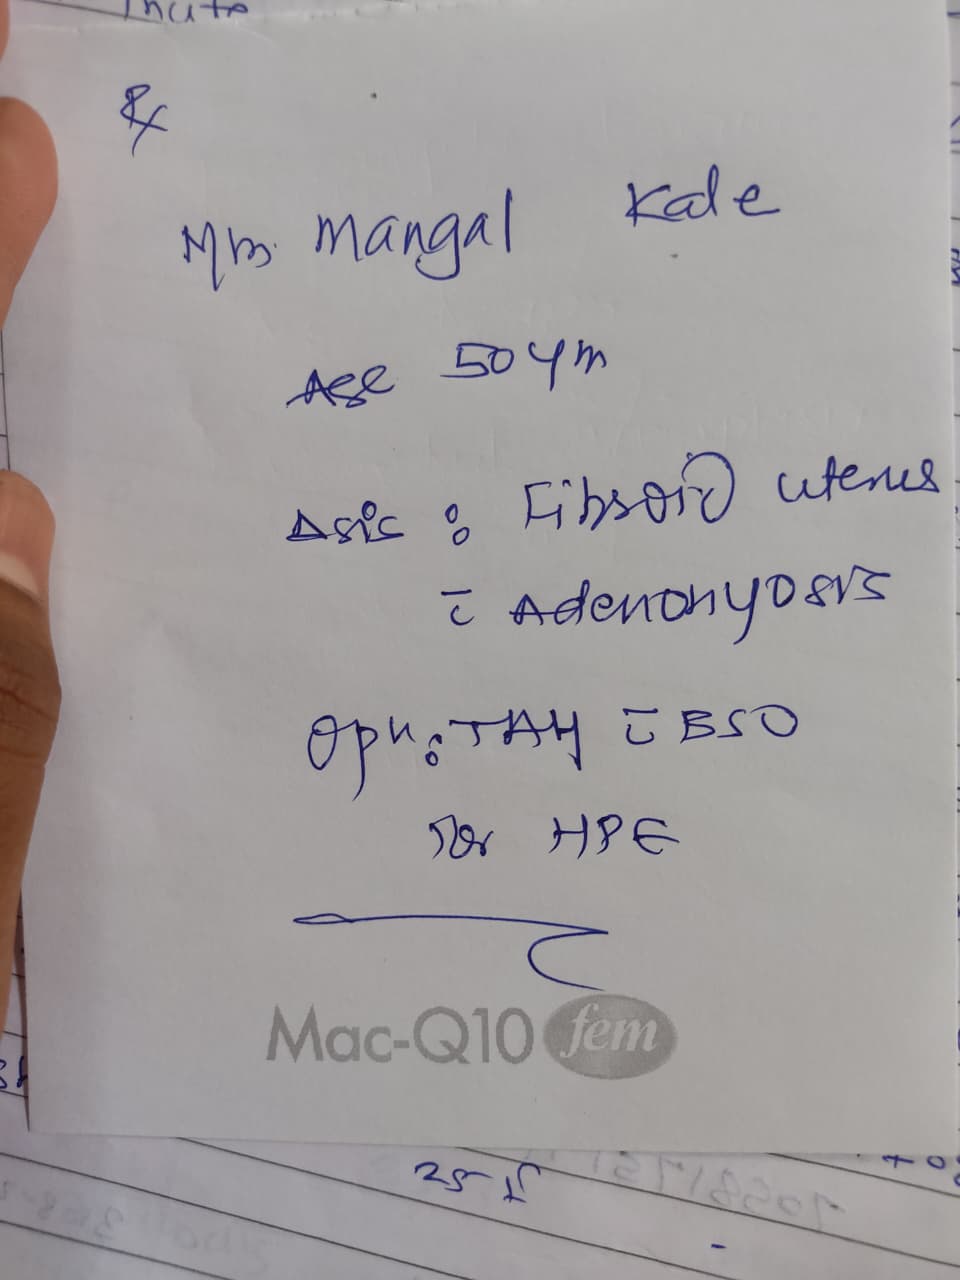 Rx
Mrs. Mangal Kale
Age 50 yrs
Δsis : Fibroid uterus
c̄ Adenomyosis
Opn : TAH c̄ BSO
for HPE
Mac-Q10 fem
25-